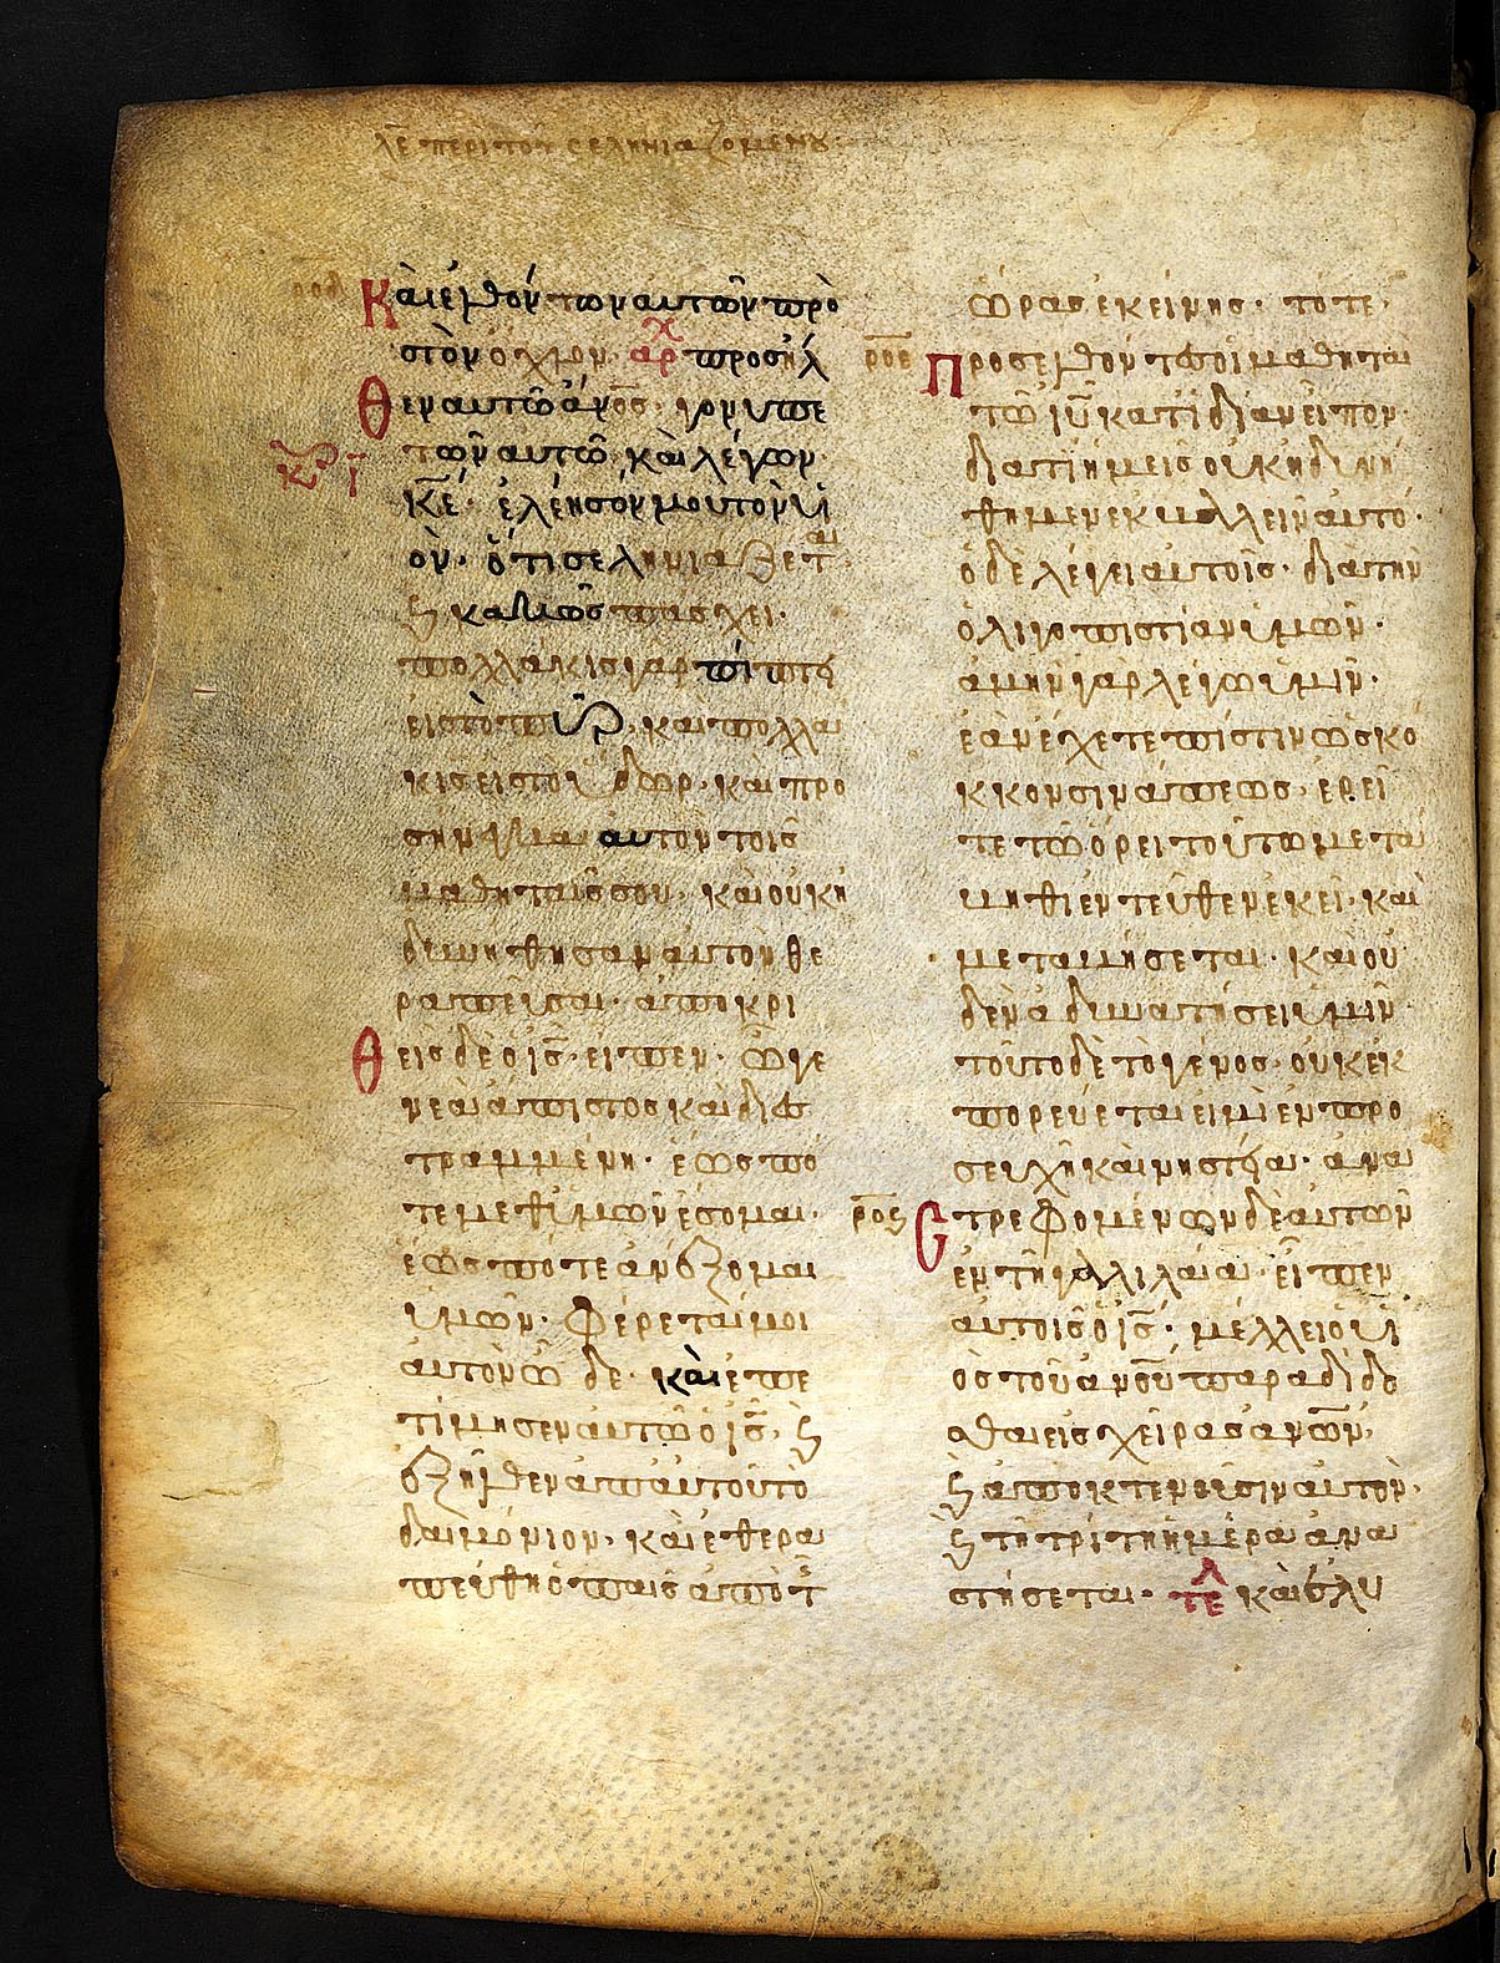 λε περι του σεληνιαζομενου
ροδ
Και ἐλθόντων αυτῶν προ
στὸν ὄχλον· αρχ προσῆλ
Θεν αυτῶ ἄνος· γονυπε
τῶν αυτῶ καὶ λέγων·
κε· ἐλέησόν μου τὸν υἱ
ὸν· ὅτι σεληνιαζεται
ϗ κακῶς πάσχει·
πολλάκις γαρ πίπτει
εἰς τὸ πυρ· καὶ πολλα
κις εἰς τὸ ὕδωρ· καὶ προ
σήνεγκα αυτὸν τοῖς
μαθηταῖς σου· καὶ οὐκ ἠ
δυνήθησαν αυτὸν θε
ραπεῦσαι· ἀποκρι
Θεὶς δὲ ὁ ις· εἶπεν· ὦ γε
νεὰ ἄπιστος καὶ διεσ
τραμμένη· ἕως πό
τε μεθ ὑμῶν ἔσομαι·
ἕως πότε ἀνέξομαι
ὑμῶν· φέρεταί μοι
αυτὸν ὧδε· καὶ ἐπε
τίμησεν αυτῶ ὁ ις· ϗ
ἐξῆλθεν ἀπ αυτοῦ τὸ
δαιμόνιον· καὶ ἐθερα
πεύθη ὁ παῖς ἀπὸ τ
ὥρας ἐκείνης· τότε·
ροε
Προσελθόντες οἱ μαθηται
τῶ ιυ κατ ἰδίαν εἶπον·
διατί ἡμεῖς οὐκ ἠδυνή
θημεν ἐκβαλλεῖν αυτό·
ὁ δὲ λέγει αυτοῖς· διὰ τὴν
ὀλιγοπιστίαν ὑμῶν·
ἀμὴν γὰρ λέγω ὑμῖν·
ἐὰν ἔχετε πίστιν ὡς κό
κκον σινάπεως· ἐρεῖ
τε τῶ ὄρει τούτω μετα
μηθι ἐντεῦθεν ἐκεῖ· και
μεταμήσεται· καὶ οὐ
δὲν ἀδυνατήσει ὑμῖν·
τοῦτο δὲ τὸ γένος· οὐκ ἐκ
πορεύεται εἰ μὴ ἐν προ
σευχῆ καὶ νηστεία· ἀνα
ροϛ
Στρεφομένων δὲ αυτῶν
ἐν τῆ γαλιλαία· εἶπεν
αυτοῖς ὁ ις· μέλλει ὁ υἱ
ὸς τοῦ ανου παραδίδο
σθαι εἰς χεῖρας ανων·
ϗ ἀποκτενοῦσιν αυτὸν·
ϗ τῆ τρίτη ἡμέρα ἀνα
στήσεται· τελ καὶ ἐλυ